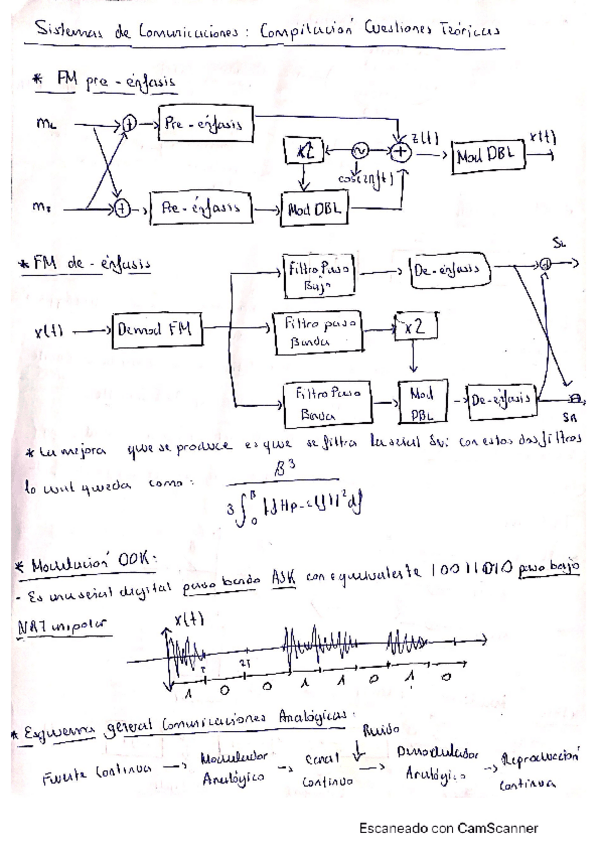 Sistemas de Comunicaciones: Compilación Cuestiones Teóricas
* FM pre-énfasis
mL + Pre-énfasis
x2 ~ + z(t) Mod DBL x(t)
cos(2πft)
+ Pre-énfasis Mod DBL
* FM de-énfasis
Filtro Paso Bajo De-énfasis + SL
x(t) Demod FM Filtro paso Banda x2
Filtro Paso Banda Mod DBL De-énfasis SR
* La mejora que se produce es que se filtra la señal con estos dos filtros
lo cual queda como:
B³
3∫
* Modulación OOK:
- Es una señal digital paso banda ASK con equivalente 10011010 paso bajo
NRZ unipolar
x(t)
T 2T
1 0 0 1 1 0 1 0
* Esquema general Comunicaciones Analógicas:
Ruido
Fuente Continua → Modulador Analógico → Canal Continuo → Demodulador Analógico → Reproducción Continua
Escaneado con CamScanner